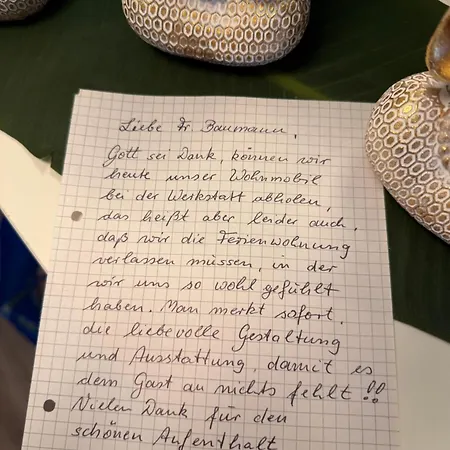 Liebe Fr. Baumann,
Gott sei Dank, können wir
heute unser Wohnmobil
bei der Werkstatt abholen,
das heißt aber leider auch,
daß wir die Ferienwohnung
verlassen müssen, in der
wir uns so wohl gefühlt
haben. Man merkt sofort,
die liebevolle Gestaltung
und Ausstattung, damit es
dem Gast an nichts fehlt!!
Vielen Dank für den
schönen Aufenthalt